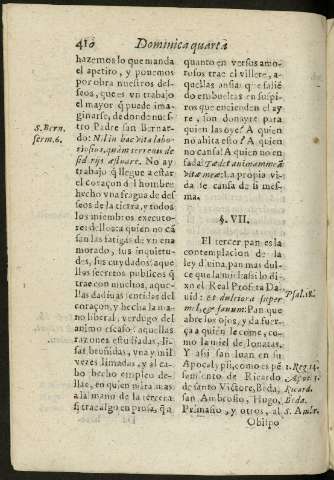 410 Dominica quarta
hazemos lo que manda
el apetito, y ponemos
por obra nuestros des-
seos, que es vn trabajo
el mayor q̃ puede ima-
ginarse, de donde nues-
tro Padre san Bernar-
do: Nil in hac vita labo-
riosius, quàm terrenis de
siderijs æstuare. No ay
trabajo q̃ llegue a estar
el coraçon del hombre
hecho vna fragua de des-
seos de la tierra, y todos
los miembros executo-
res dellos: a quien no cã
san las fatigas de vn ena
morado, sus inquietu-
des, sus cuydados: aque
llos secretos publicos q̃
trae con muchos, aque-
llas dadiuas sentidas del
coraçon, y hecha la ma-
no liberal, verdugo del
animo escaso: aquellas
razones estudiadas, li-
sas, bruñidas, vna y mil
vezes limadas, y al ca-
bo hecho empleo de-
llas, en quien mira mas
a la mano de la tercera
si trae algo en prosa, q̃ a
S. Bern.
serm. 6.
quanto en versus amo-
rosos trae el villete, a-
quellas ansias que salie
do embueltas en suspi-
ros que encienden el ay
re, son donayre para
quien las oye? A quien
no ahita esso? A quien
no cansa? A quien no en
fada? Tædet animam meã
vitæ meæ: La propia vi-
da se cansa de si mes-
ma.
§. VII.
El tercer pan es la
contemplacion de la
ley diuina, pan mas dul-
ce que la miel: assi lo di-
xo el Real Profeta Da
uid: Et dulciora super
mel, & fauum. Pan que
abre los ojos, y da fuer-
ça a quien le come, co-
mo la miel de Ionatas.
Y assi san Iuan en su
Apocalypsi, como es pẽ
samiento de Ricardo
de santo Victore, Beda,
san Ambrosio, Hugo,
Primasio, y otros, al
Psal. 18.
1. Reg. 14.
Ricard.
Beda.
S. Ambr.
Obispo